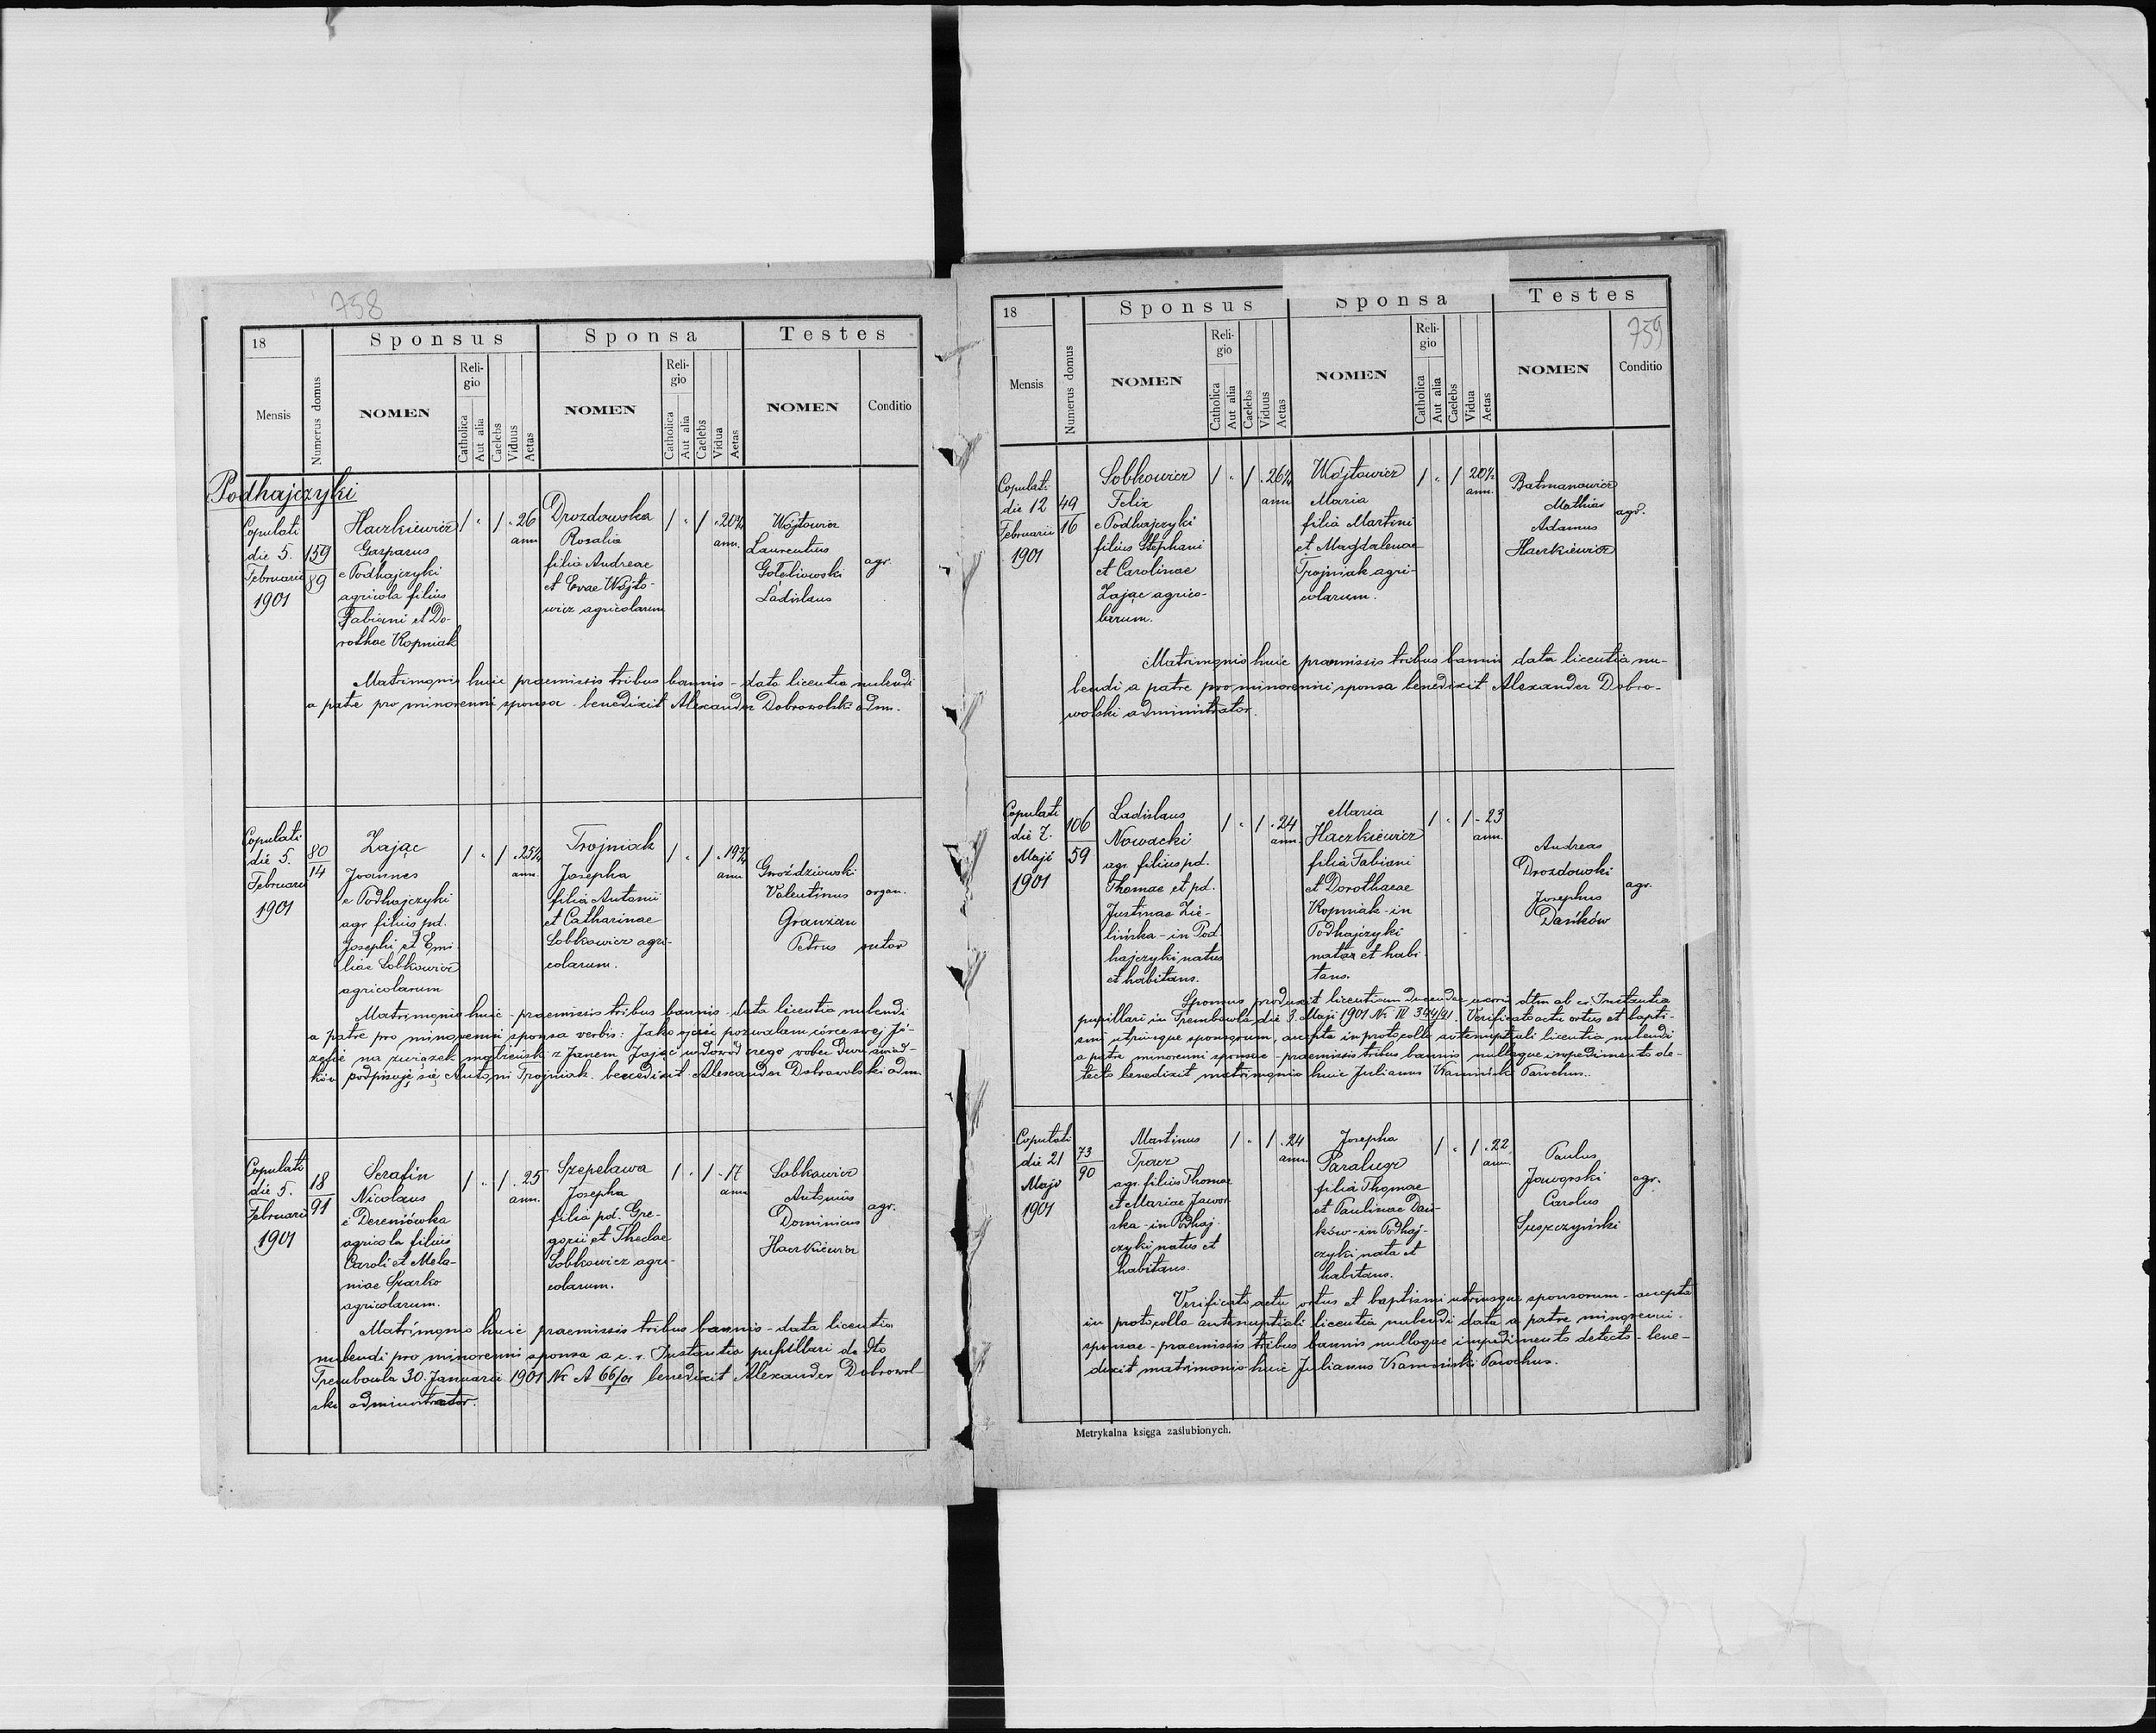 758
18
Sponsus
Sponsa
Testes
Mensis
Numerus domus
NOMEN
Religio
Catholica
Aut alia
Caelebs
Viduus
Aetas
NOMEN
Religio
Catholica
Aut alia
Caelebs
Vidua
Aetas
NOMEN
Conditio
Podhajczyki
Copulati
die 5.
Februarii
1901
159
89
Haczkiewicz
Gasparus
e Podhajczyki
agricola filius
Fabiani et Do-
rothae Kopniak
1 " 1 " 26
ann.
Drozdowska
Rosalia
filia Andreae
et Evae Wójto-
wicz agricolarum
1 " 1 " 20¾
ann.
Wójtowicz
Laurentius
Gołębiowski
Ladislaus
agr.
Matrimonio huic praemissis tribus bannis - data licentia nubendi
a patre pro minorenni sponsa - benedixit Alexander Dobrowolski adm.
Copulati
die 5.
Februarii
1901
80
14
Zając
Joannes
e Podhajczyki
agr. filius pd.
Josephi et Emi-
liae Sobkowicz
agricolarum
1 " 1 " 25¼
ann.
Trojniak
Josepha
filia Antonii
et Catharinae
Sobkowicz agri-
colarum.
1 " 1 " 19¾
ann.
Gwoździowski
Valentinus
Granzan
Petrus
organ.
sutor
Matrimonio huic - praemissis tribus bannis - data licentia nubendi
a patre pro minorenni sponsa verbis: Jako ojciec pozwalam córce swej Jó-
zefie na związek małżeński z Janem Zając w dowód czego wobec dwu świad-
ków podpisuję się Antoni Trojniak. benedixit Alexander Dobrowolski adm.
Copulati
die 5.
Februarii
1901
18
91
Serafin
Nicolaus
e Dereniówka
agricola filius
Caroli et Mela-
niae Szarko
agricolarum.
1 " 1 " 25
ann.
Szepelawa
Josepha
filia pd. Gre-
gorii et Theclae
Sobkowicz agri-
colarum.
1 " 1 " 17
ann.
Sobkowicz
Antonius
Dominicus
Haczkiewicz
agr.
Matrimonio huic praemissis tribus bannis - data licentia
nubendi pro minorenni sponsa a c. r. Instantia pupillari de dto
Trembowla 30. Januarii 1901 Nr A 66/01 benedixit Alexander Dobrowol-
ski administrator.
18
Sponsus
Sponsa
Testes
759
Mensis
Numerus domus
NOMEN
Religio
Catholica
Aut alia
Caelebs
Viduus
Aetas
NOMEN
Religio
Catholica
Aut alia
Caelebs
Vidua
Aetas
NOMEN
Conditio
Copulati
die 12
Februarii
1901
49
16
Sobkowicz
Felix
e Podhajczyki
filius Stephani
et Carolinae
Zając agrico-
larum.
1 " 1 " 26¼
ann.
Wójtowicz
Maria
filia Martini
et Magdalenae
Trojniak agri-
colarum.
1 " 1 20½
ann.
Batmanowicz
Mathias
Adamus
Haczkiewicz
agr.
Matrimonio huic praemissis tribus bannis data licentia nu-
bendi a patre pro minorenni sponsa benedixit Alexander Dobro-
wolski administrator.
Copulati
die 7.
Maji
1901
106
59
Ladislaus
Nowacki
agr. filius pd.
Thomae et pd.
Justinae Zie-
lińska - in Pod-
hajczyki natus
et habitans.
1 " 1 " 24
ann.
Maria
Haczkiewicz
filia Fabiani
et Dorotheae
Kopniak - in
Podhajczyki
nata et habi-
tans.
1 " 1 " 23
ann.
Andreas
Drozdowski
Josephus
Dańków
agr.
Sponsus produxit licentiam ducendae uxoris dtm ab cr. Instantia
pupillari in Trembowla die 3. Maji 1901 Nr III 344/91. Verificato actu ortus et bapti-
smi utriusque sponsorum, accepta in protocollo antenuptiali licentia nubendi
a patre minorenni sponsae - praemissis tribus bannis nulloque impedimento de-
tecto benedixit matrimonio huic Julianus Kamiński Parochus.
Copulati
die 21
Maji
1901
73
90
Martinus
Tracz
agr. filius Thomae
et Mariae Jawor-
ska - in Podhaj-
czyki natus et
habitans.
1 " 1 " 24
ann.
Josepha
Paraluez
filia Thomae
et Paulinae Dań-
ków - in Podhaj-
czyki nata et
habitans.
1 " 1 " 22
ann.
Paulus
Jaworski
Carolus
Suszczyński
agr.
Verificato actu ortus et baptismi utriusque sponsorum - accepta
in protocollo antenuptiali licentia nubendi data a patre minorenni
sponsae - praemissis tribus bannis nulloque impedimento detecto - bene-
dixit matrimonio huic Julianus Kamiński Parochus.
Metrykalna księga zaślubionych.